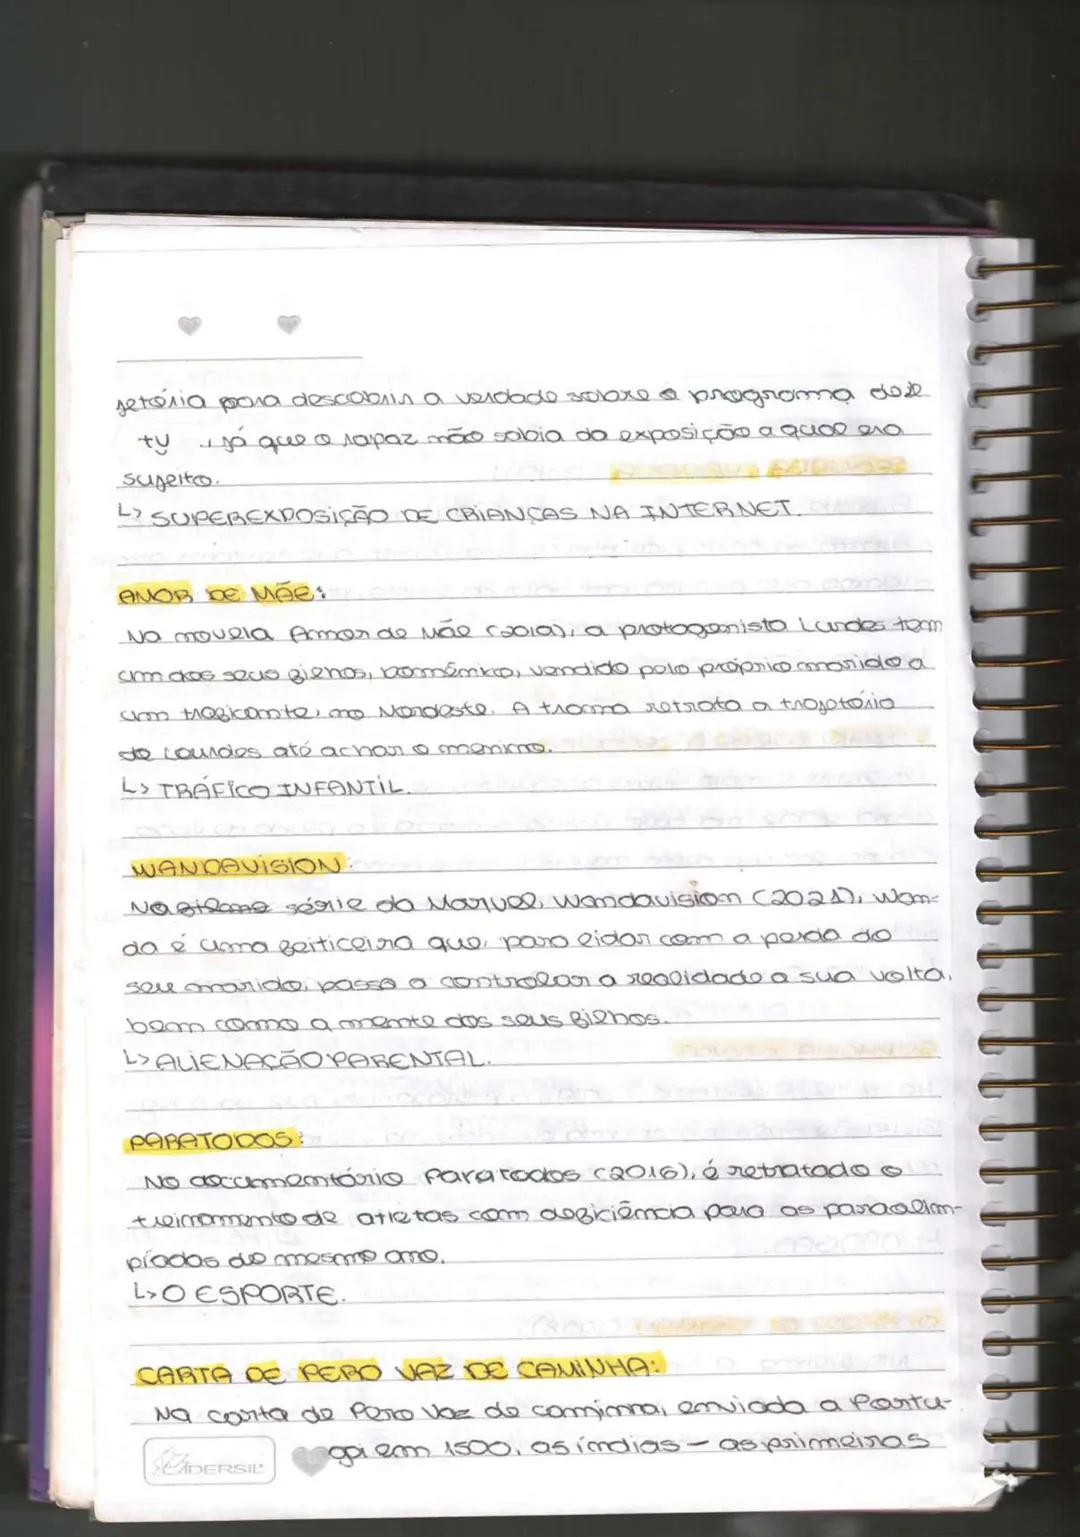 jetória para descobrir a verdade sobre o programa deste
tv, já que o rapaz não sabia da exposição a qual era
sujeito.
↳ SUPEREXPOSIÇÃO DE CRIANÇAS NA INTERNET.
AMOR DE MÃE:
Na novela Amor de Mãe (2019), a protagonista Lurdes tem
um dos seus filhos, Domênico, vendido pelo próprio marido a
um traficante, no Nordeste. A trama retrata a trajetória
de Lourdes até achar o menino.
↳ TRÁFICO INFANTIL.
WANDAVISION:
No filme série da Marvel, Wandavision (2021), Wan-
da é uma feiticeira que, para lidar com a perda do
seu marido, passa a controlar a realidade a sua volta,
bem como a mente dos seus filhos.
↳ ALIENAÇÃO PARENTAL.
PARATODOS:
No documentário Paratodos (2016), é retratado o
treinamento de atletas com deficiência para as paraolim-
píadas do mesmo ano.
↳ O ESPORTE.
CARTA DE PERO VAZ DE CAMINHA:
Na carta de Pero Vaz de caminha, enviada a Portu-
gal em 1500, as índias – as primeiras
LIDERSIL